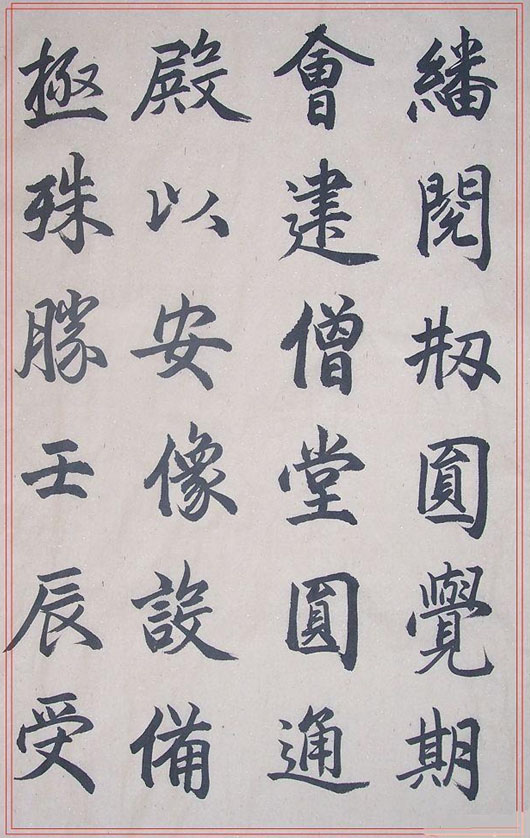 繙閱刱圓覺期
會建僧堂圓通
殿以安像設備
極殊勝壬辰受